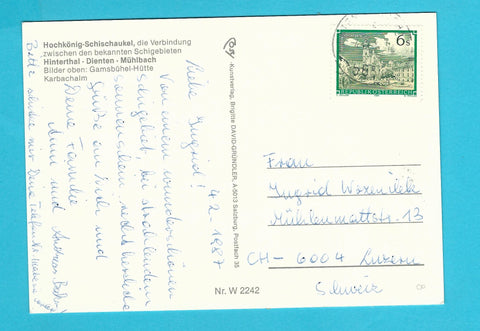 Hochkönig-Schischaukel, die Verbindung
zwischen den bekannten Schigebieten
Hinterthal - Dienten - Mühlbach
Bilder oben: Gamsbühel-Hütte
Karbachalm
4.2.1987
Liebe Ingrid!
Von einem wunderschönen
Schigebiet, bei strahlendem
Sonnenschein, recht herzliche
Grüße an Dich und
Deine Familie
und Andreas
Bitte schicke mir Deine Telefonnummer
Kunstverlag, Brigitte DAVID-GRÜNDLER, A-5013 Salzburg, Postfach 35
Nr. W 2242
6 S
REPUBLIK ÖSTERREICH
Frau
Ingrid
Mühlemattstr. 13
CH - 6004 Luzern
Schweiz